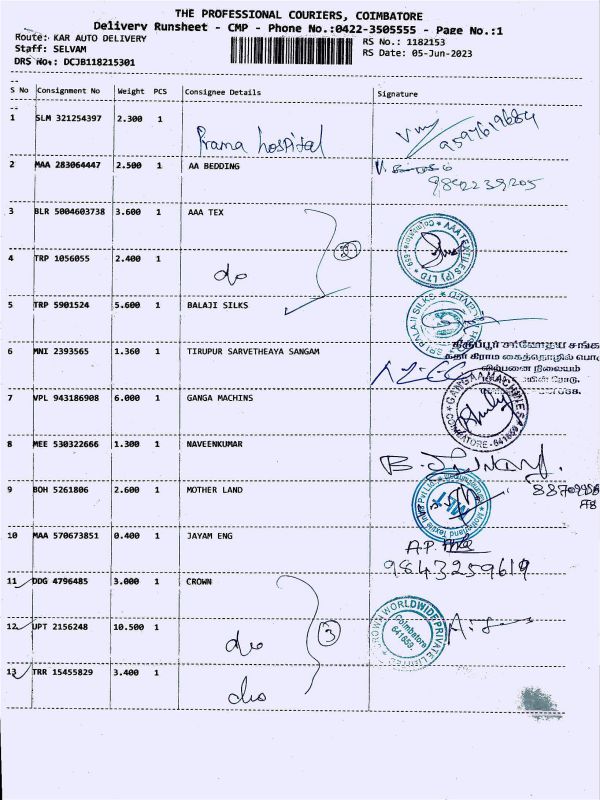 THE PROFESSIONAL COURIERS, COIMBATORE
Delivery Runsheet - CMP - Phone No.:0422-3505555 - Page No.:1
Route: KAR AUTO DELIVERY RS No.: 1182153
Staff: SELVAM RS Date: 05-Jun-2023
DRS No.: DCJB118215301
S No Consignment No Weight PCS Consignee Details Signature
1 SLM 321254397 2.300 1 Prama hospital 9597619684
2 MAA 283064447 2.500 1 AA BEDDING
9842239205
3 BLR 5004603738 3.600 1 AAA TEX
AAA TEXTILES (P) LTD
4 TRP 1056055 2.400 1 do 2
5 TRP 5901524 5.600 1 BALAJI SILKS
SRI BALAJI SILKS
6 MNI 2393565 1.360 1 TIRUPUR SARVETHEAYA SANGAM
விற்பனை நிலையம்
7 VPL 943186908 6.000 1 GANGA MACHINS
GANGA MACHINES COIMBATORE - 641659
8 MEE 530322666 1.300 1 NAVEENKUMAR
9 BOH 5261806 2.600 1 MOTHER LAND
10 MAA 570673851 0.400 1 JAYAM ENG A.P.
9843259619
11 DDG 4796485 3.000 1 CROWN
CROWN WORLDWIDE PRIVATE LIMITED Coimbatore 641659
12 UPT 2156248 10.500 1 do 3
13 TRR 15455829 3.400 1 do